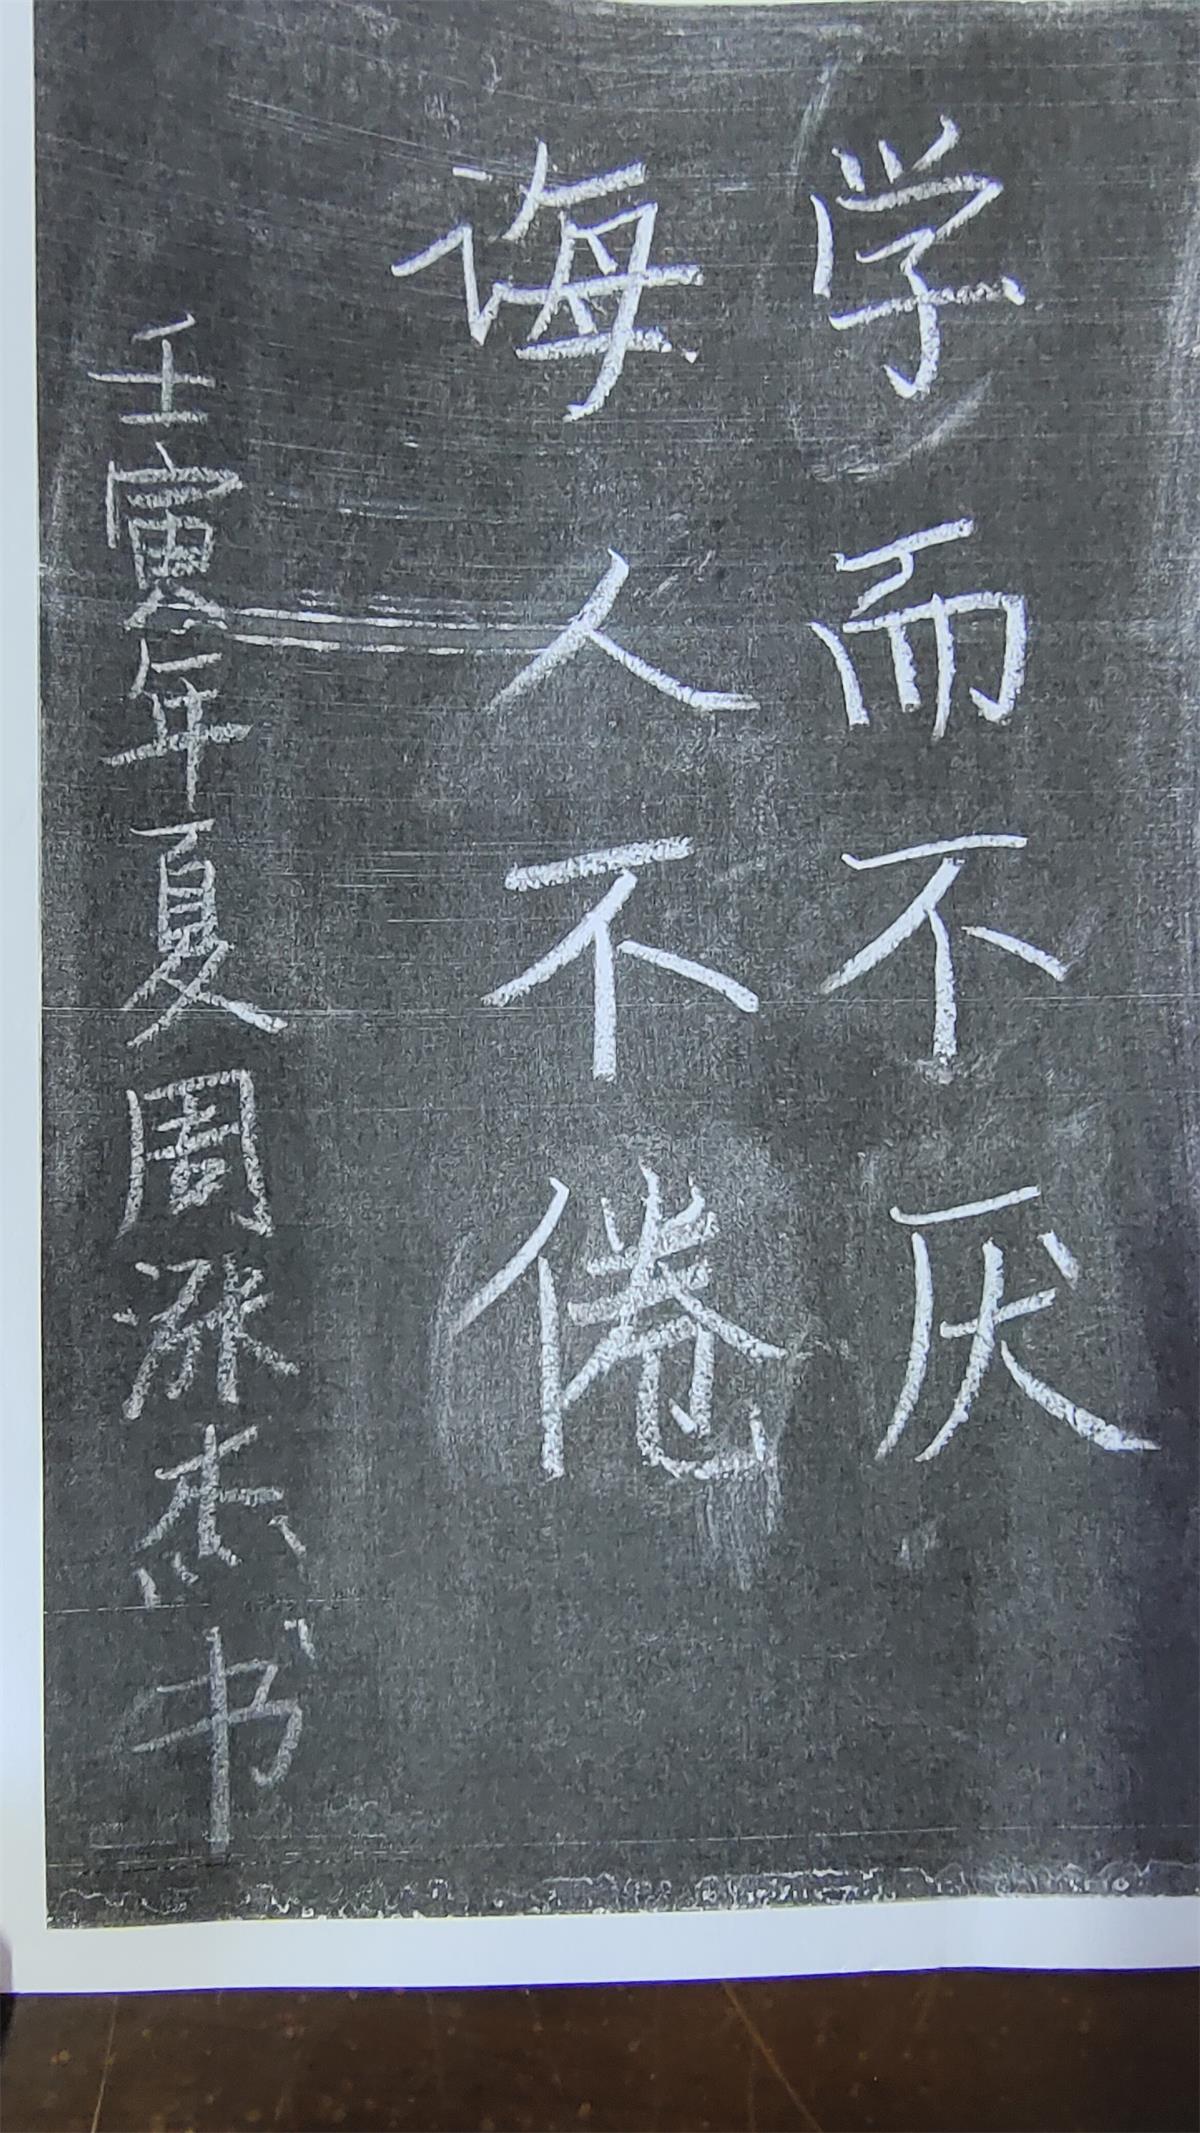 学而不厌
诲人不倦
壬寅年夏周涨杰书